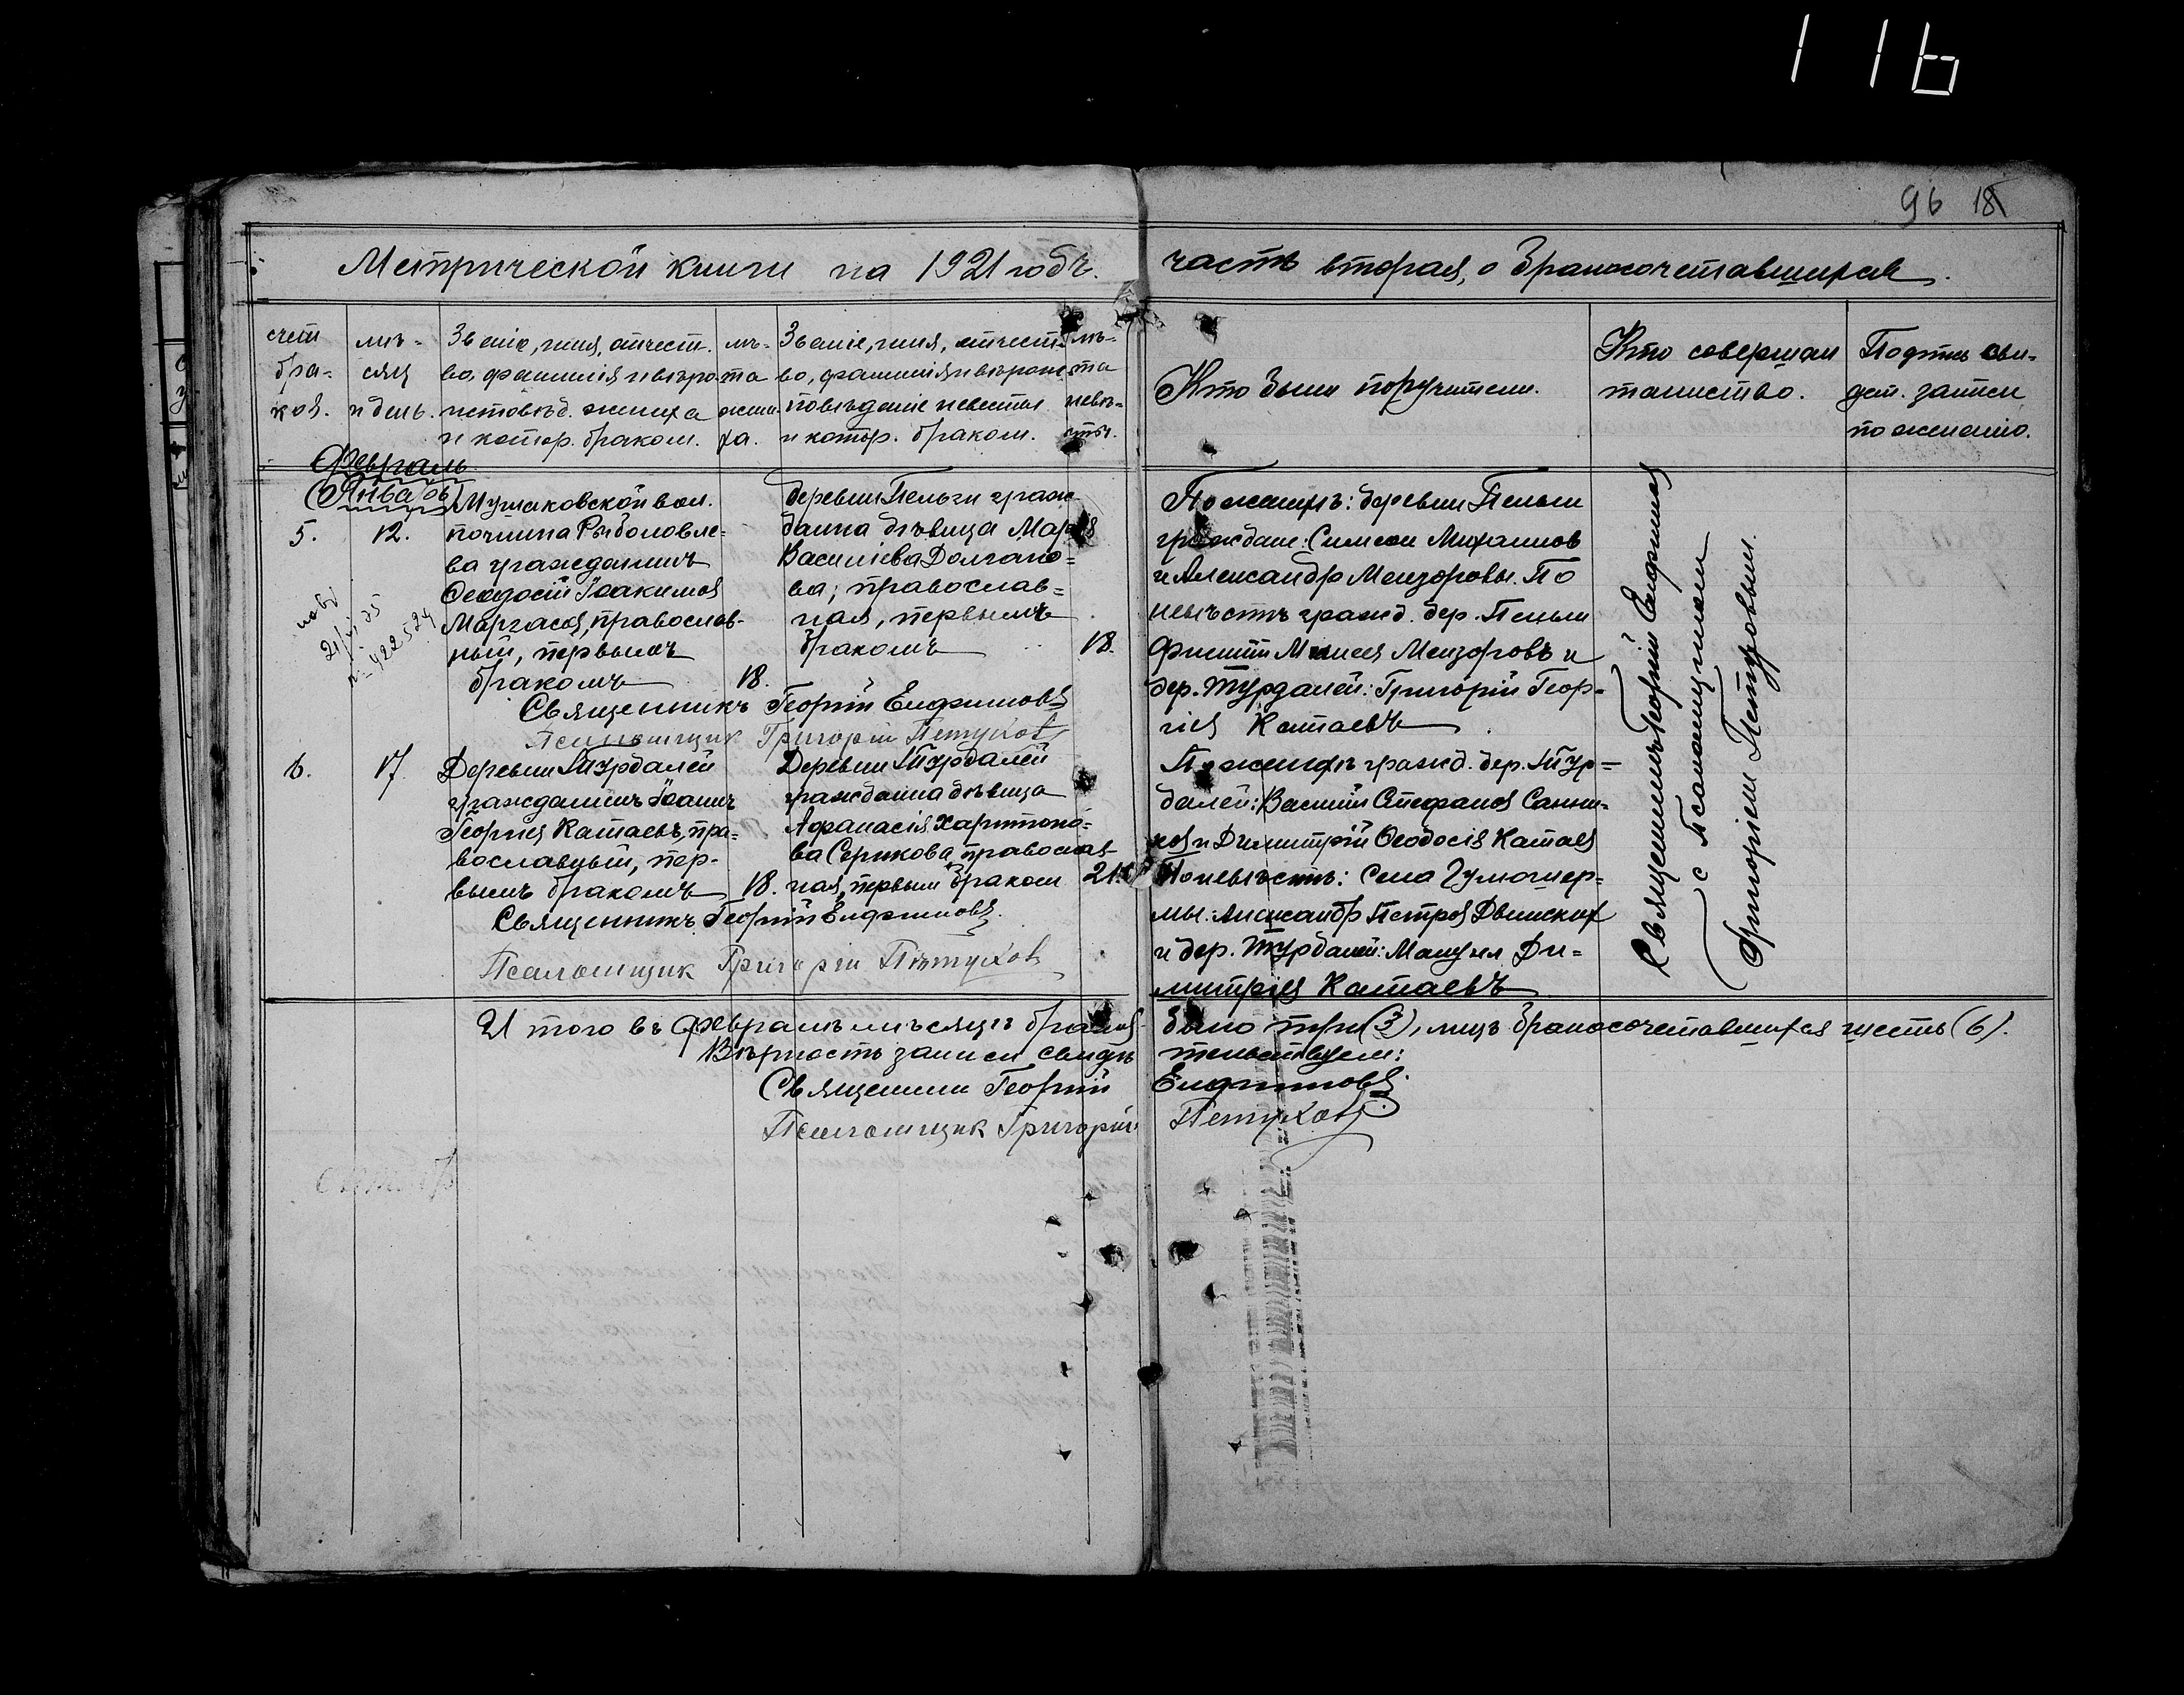 116
96 18
Метрической книги на 1921 годъ. часть вторая, о бракосочетавшихся.
счет
бра-
ков.
мѣ-
сяц
и день.
Званіе, имя, отчест-
во, фамилія и вѣро-
исповѣд. жениха
и котор. браком.
лѣ-
та
жени-
ха.
Званіе, имя, отчест-
во, фамилія и вѣроис-
повѣданіе невесты
и котор. браком.
лѣ-
та
невѣ-
сты.
Кто были поручители.
Кто совершал
таинство.
Подпись сви-
дет. записи
по желанію.
Февраль
(Январь)
5.
12.
Мушаковской вол.
починка Рыболовле-
ва гражданинъ
Ѳеодосій Іоакимов
Маргасов, православ-
ный, первымъ
бракомъ
18.
деревни Пельги граж-
данка дѣвица Марія
Василіева Долгано-
ва; православ-
ная, первымъ
бракомъ
18.
По женихѣ: деревни Пельги
граждане: Симеон Михаилов
и Александр Мензоровы. По
невѣстѣ гражд. дер. Пельги
Филипп Мензоровъ и
дер. Турдалей: Григорій Геор-
гіев Катаевъ
Священникъ Георгій Евфимовъ
Псаломщик Григорій Петухов
6.
17.
Деревни Турдалей
гражданинъ Іоаннъ
Георгіев Катаевъ, пра-
вославный, пер-
вымъ бракомъ
18.
Деревни Турдалей
гражданка дѣвица
Афанасія Харитоно-
ва Серикова, православ-
ная, первым браком
21.
По женихѣ гражд. дер. Тур-
далей: Василій Стефанов Санни-
ков и Димитрій Ѳеодосіев Катаев
По невѣстѣ: Села
Александр Петров Двинских
и дер. Турдалей: Мануил Ди-
митріев Катаевъ
Священникъ Георгій Евфимовъ.
Псаломщик Григорій Пѣтухов
Священникъ Георгій Евфимов
с Псаломщиком
Григоріем Петуховым.
Итого въ Февралѣ мѣсяцѣ браков было три (3), лицъ бракосочетавшихся шесть (6).
Вѣрность записи свидѣтельствуем:
Священник Георгій Евфимовъ.
Псаломщик Григорій Петухов